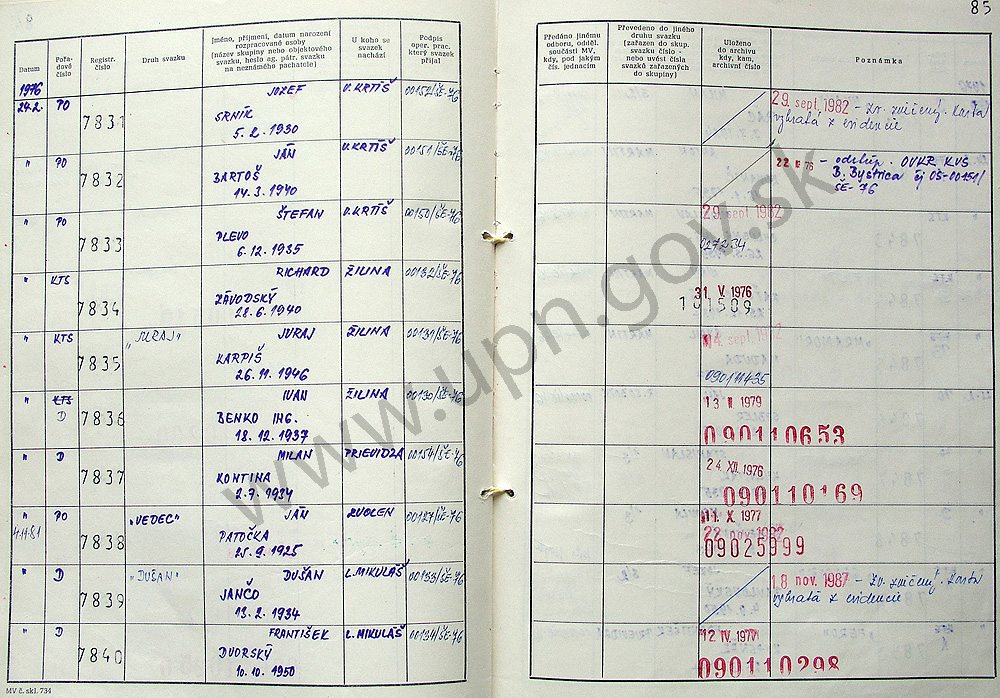 85
Datum
Pořa-
dové
číslo
Registr.
číslo
Druh svazku
Jméno, příjmení, datum narození
rozpracované osoby
(název skupiny nebo objektového
svazku, heslo ag. pátr. svazku
na neznámého pachatele)
U koho se
svazek
nachází
Podpis
oper. prac.
který svazek
přijal
Předáno jinému
odboru, odděl.
součásti MV,
kdy, pod jakým
čís. jednacím
Převedeno do jiného
druhu svazku
(zařazen do skup.
svazku číslo -
nebo uvést čísla
svazků zařazených
do skupiny)
Uloženo
do archivu
kdy, kam,
archivní číslo
Poznámka
1976
24.2. PO 7831 JOZEF V. KRTÍŠ 00152/ŠE-76
SRNÍK
5. 2. 1930
29. sept. 1982 - Zv. zničený. Karta
vybratá z evidencie
" PO 7832 JÁN V. KRTÍŠ 00151/ŠE-76
BARTOŠ
14. 3. 1940
22 76 - odstúp. OVKR KVŠ
B. Bystrica čj OŠ-00151/
ŠE-76
" PO 7833 ŠTEFAN V. KRTÍŠ 00150/ŠE-76
PLEVO
6. 12. 1935
29. sept 1982
" KTS 7834 RICHARD ŽILINA 00132/ŠE-76
ZÁVODSKÝ
28. 6. 1940
31. V. 1976
101509
" KTS 7835 „JURAJ" JURAJ ŽILINA 00131/ŠE-76
KARPIŠ
26. 11. 1946
sept. 1982
" KTS 7836 IVAN ŽILINA 00130/ŠE-76
D
BENKO ING.
18. 12. 1937
1979
090110653
" D 7837 MILAN PRIEVIDZA 00154/ŠE-76
KONTINA
2. 7. 1934
24. XII. 1976
090110169
" PO 7838 „VEDEC" JÁN ZVOLEN 00127/ŠE-76
4.11.81
PATOČKA
25. 9. 1925
11. X. 1977
22 nov.
09025999
" D 7839 „DUŠAN" DUŠAN L. MIKULÁŠ 00135/ŠE-76
JANČO
13. 2. 1934
18 nov. 1987 - Zv. zničený. Karta
vybratá z evidencie
" D 7840 FRANTIŠEK L. MIKULÁŠ 00134/ŠE-76
DVORSKÝ
10. 10. 1950
12 IV. 1977
090110298
MV č. skl. 734
www.upn.gov.sk